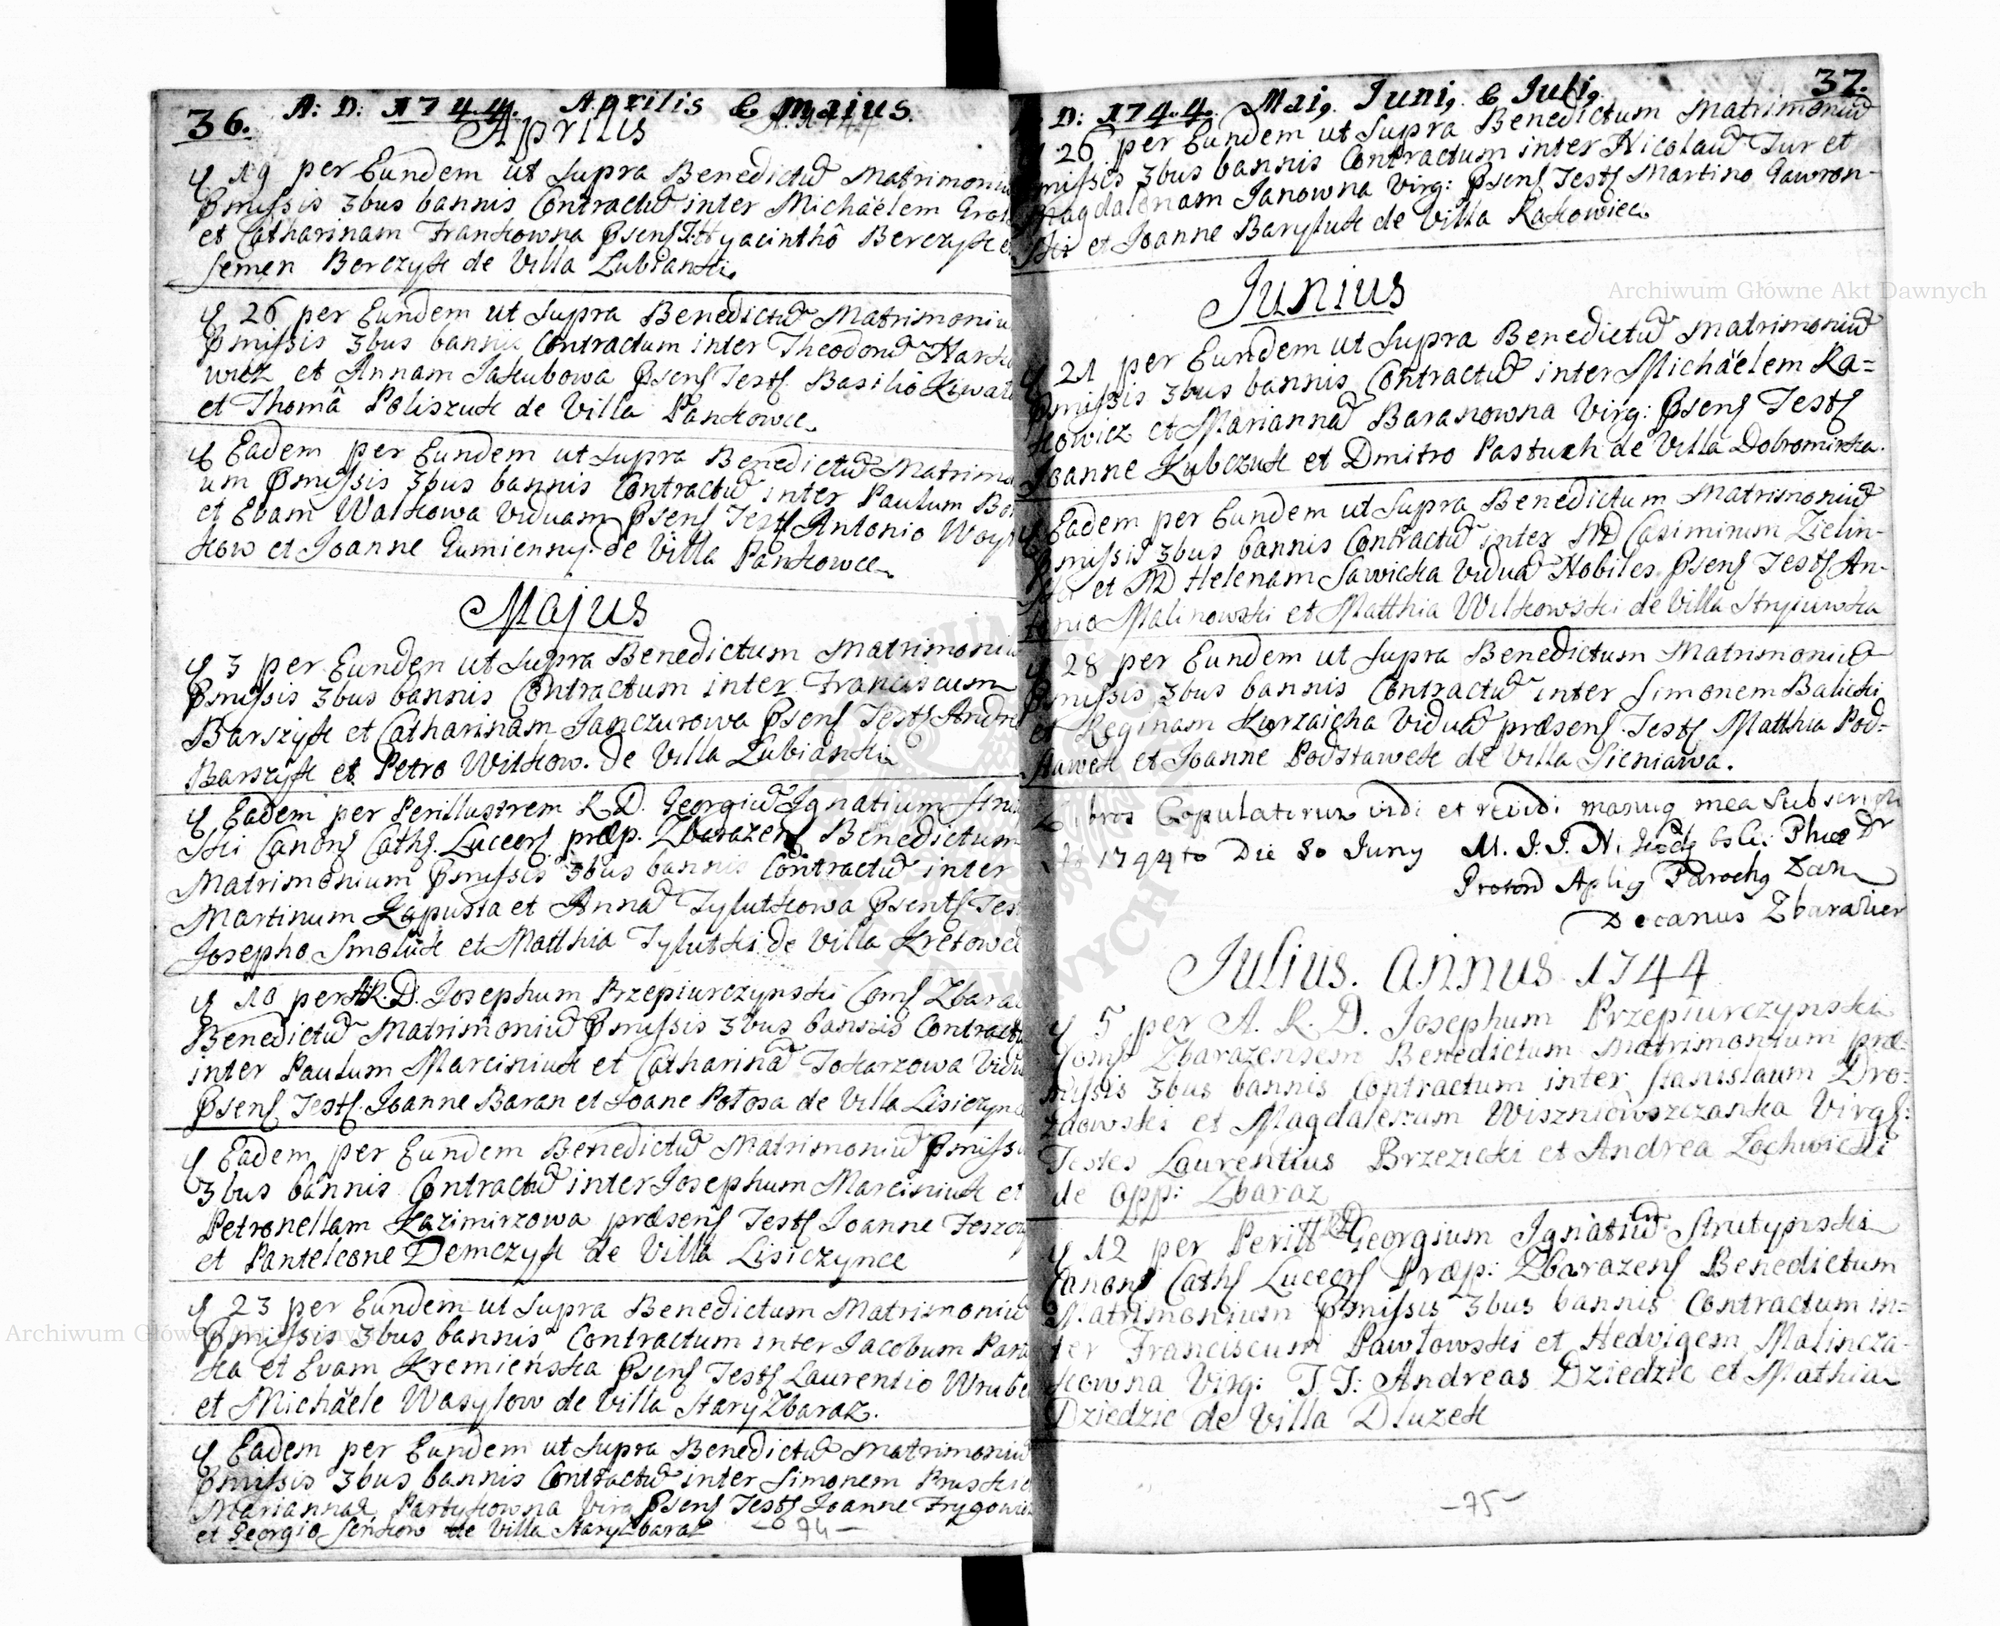 36. A: D: 1744. Aprilis & Maius.
Aprilis
19 per Eundem ut Supra Benedictū Matrimoniu
Pmissis 3bus bannis Contractū inter Michaëlem
et Catharinam Frankowna Psens Test Hyacinthô Berczyk e
Semen Berczyk de Villa Lubianki
26 per Eundem ut Supra Benedictū Matrimoniu
Pmissis 3bus bannis Contractum inter Theodorū Hark
wicz et Annam Jakubowa Psens Tests Basiliô
et Thomâ Poliszuk de Villa Pankowce
Eadem per Eundem ut Supra Benedictū Matrimo
um Pmissis 3bus bannis Contractū inter Paulum
et Evam Walkowa Viduam Psens Tests Antonio Woy
kow et Joanne Gumienny de Villa Pankowce
Majus
3 per Eunden ut Supra Benedictum Matrimoniu
Pmissis 3bus bannis Contractum inter Franciscum
Barszyk et Catharinam Janczurowa Psens Tests Andre
Barszyk et Petro Witkow. de Villa Lubianki
Eadem per Perillustrem R. D. Georgiū Ignatium Stru
ski Canons Caths. Luceors præp. Zbarazens Benedictum
Matrimonium Pmissis 3bus bannis Contractū inter
Martinum Kapusta et Annā Tylutkowa Psents Tes
Josepho Smoluk et Matthia Tylutki de Villa Kretowce
10 per A. R. D. Josephum Przepiurczynski Coms Zbara
Benedictū Matrimoniū Pmissis 3bus bannis Contractu
inter Paulum Marciniuk et Catharinā Tokarzowa Vidu
Psens Tests. Joanne Baran et Joane Potosa de Villa Lisiczyn
Eadem per Eundem Benedictū Matrimoniū Pmissi
3bus bannis Contractū inter Josephum Marciniuk et
Petronellam Kazimirzowa præsens Tests Joanne
et Panteleone Demczyk de Villa Lisiczynce
23 per Eundem ut Supra Benedictum Matrimoniū
Pmissis 3bus bannis Contractum inter Jacobum Para
ka et Evam Kremieńska Psens Tests Laurentio Wrube
et Michaële Wasylow de Villa Stary Zbaraz.
Eadem per Eundem ut Supra Benedictū Matrimoniū
Pmissis 3bus bannis Contractū inter Simonem
Mariannā Partykowna Virg Psens Tests Joanne
et Georgio Senkow de Villa Stary Zbaraz
- 74 -
D: 1744. Maig. Junig. & Julig. 37.
26 per Eundem ut Supra Benedictum Matrimoniū
missis 3bus bannis Contractum inter Nicolaū Tur et
Magdalenam Janowna Virg: Psens Tests Martino Gawron-
ski et Joanne Baryluk de Villa Kakowiec
Junius
21 per Eundem ut Supra Benedictū Matrimoniū
Pmissis 3bus bannis Contractū inter Michaëlem Ra=
kowicz et Mariannā Baranowna Virg: Psens Tests
Joanne Kubczuk et Dmitro Pastuch de Villa Dobromirka.
Eadem per Eundem ut Supra Benedictum Matrimoniū
Pmissis 3bus bannis Contractū inter MD Casimirum Zielin-
ski et MD Helenam Sawicka Viduā Nobiles Psens Tests An-
tonio Malinowski et Matthia Witkowski de Villa Stryiuwka
28 per Eundem ut Supra Benedictum Matrimoniū
Pmissis 3bus bannis Contractū inter Simonem Balicki
et Reginam Kurzaicha Viduā præsens Tests Matthia Pod-
stawek et Joanne Podstawek de Villa Sieniawa.
Libros Copulatorum vidi et revidi manug mea Subscripsi
1744to Die 30 Juny
Proton Aplig Parochg
Decanus Zbarazien
Julius. Annus 1744
5 per A. R. D. Josephum Przepiurczynski
Coms Zbarazensem Benedictum Matrimonium præ-
missis 3bus bannis Contractum inter Stanislaum Dro-
zdowski et Magdalenam Wiszniowszczanka Virgs:
Testes Laurentius Brzezicki et Andrea Lochwicki
de Opp: Zbaraz
12 per Perill RD Georgium Ignatiū Strutynski
Canons Caths Luceors Præp: Zbarazens Benedictum
Matrimonium Pmissis 3bus bannis Contractum in-
ter Franciscum Pawlowski et Hedvigem Malincza-
kowna Virg: T.T: Andreas Dziedzic et Mathia
Dziedzic de Villa Dluzek
- 75 -
Archiwum Główne Akt Dawnych
Archiwum Główne Akt Dawnych